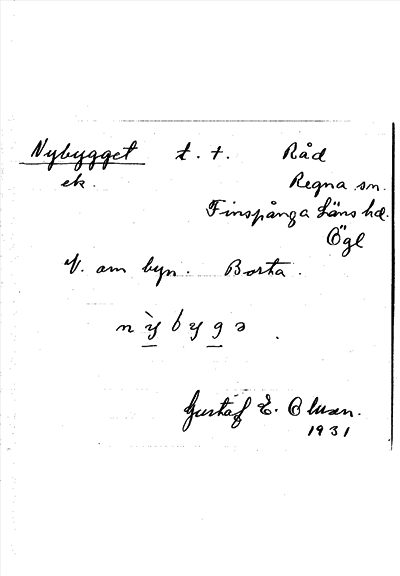 Nybygget t. t. Råd
ek. Regna sn.
Finspånga läns hd.
Ögl
V. om byn. Borta.
nỳ̖bygə.
Gustaf E. Olsson.
1931